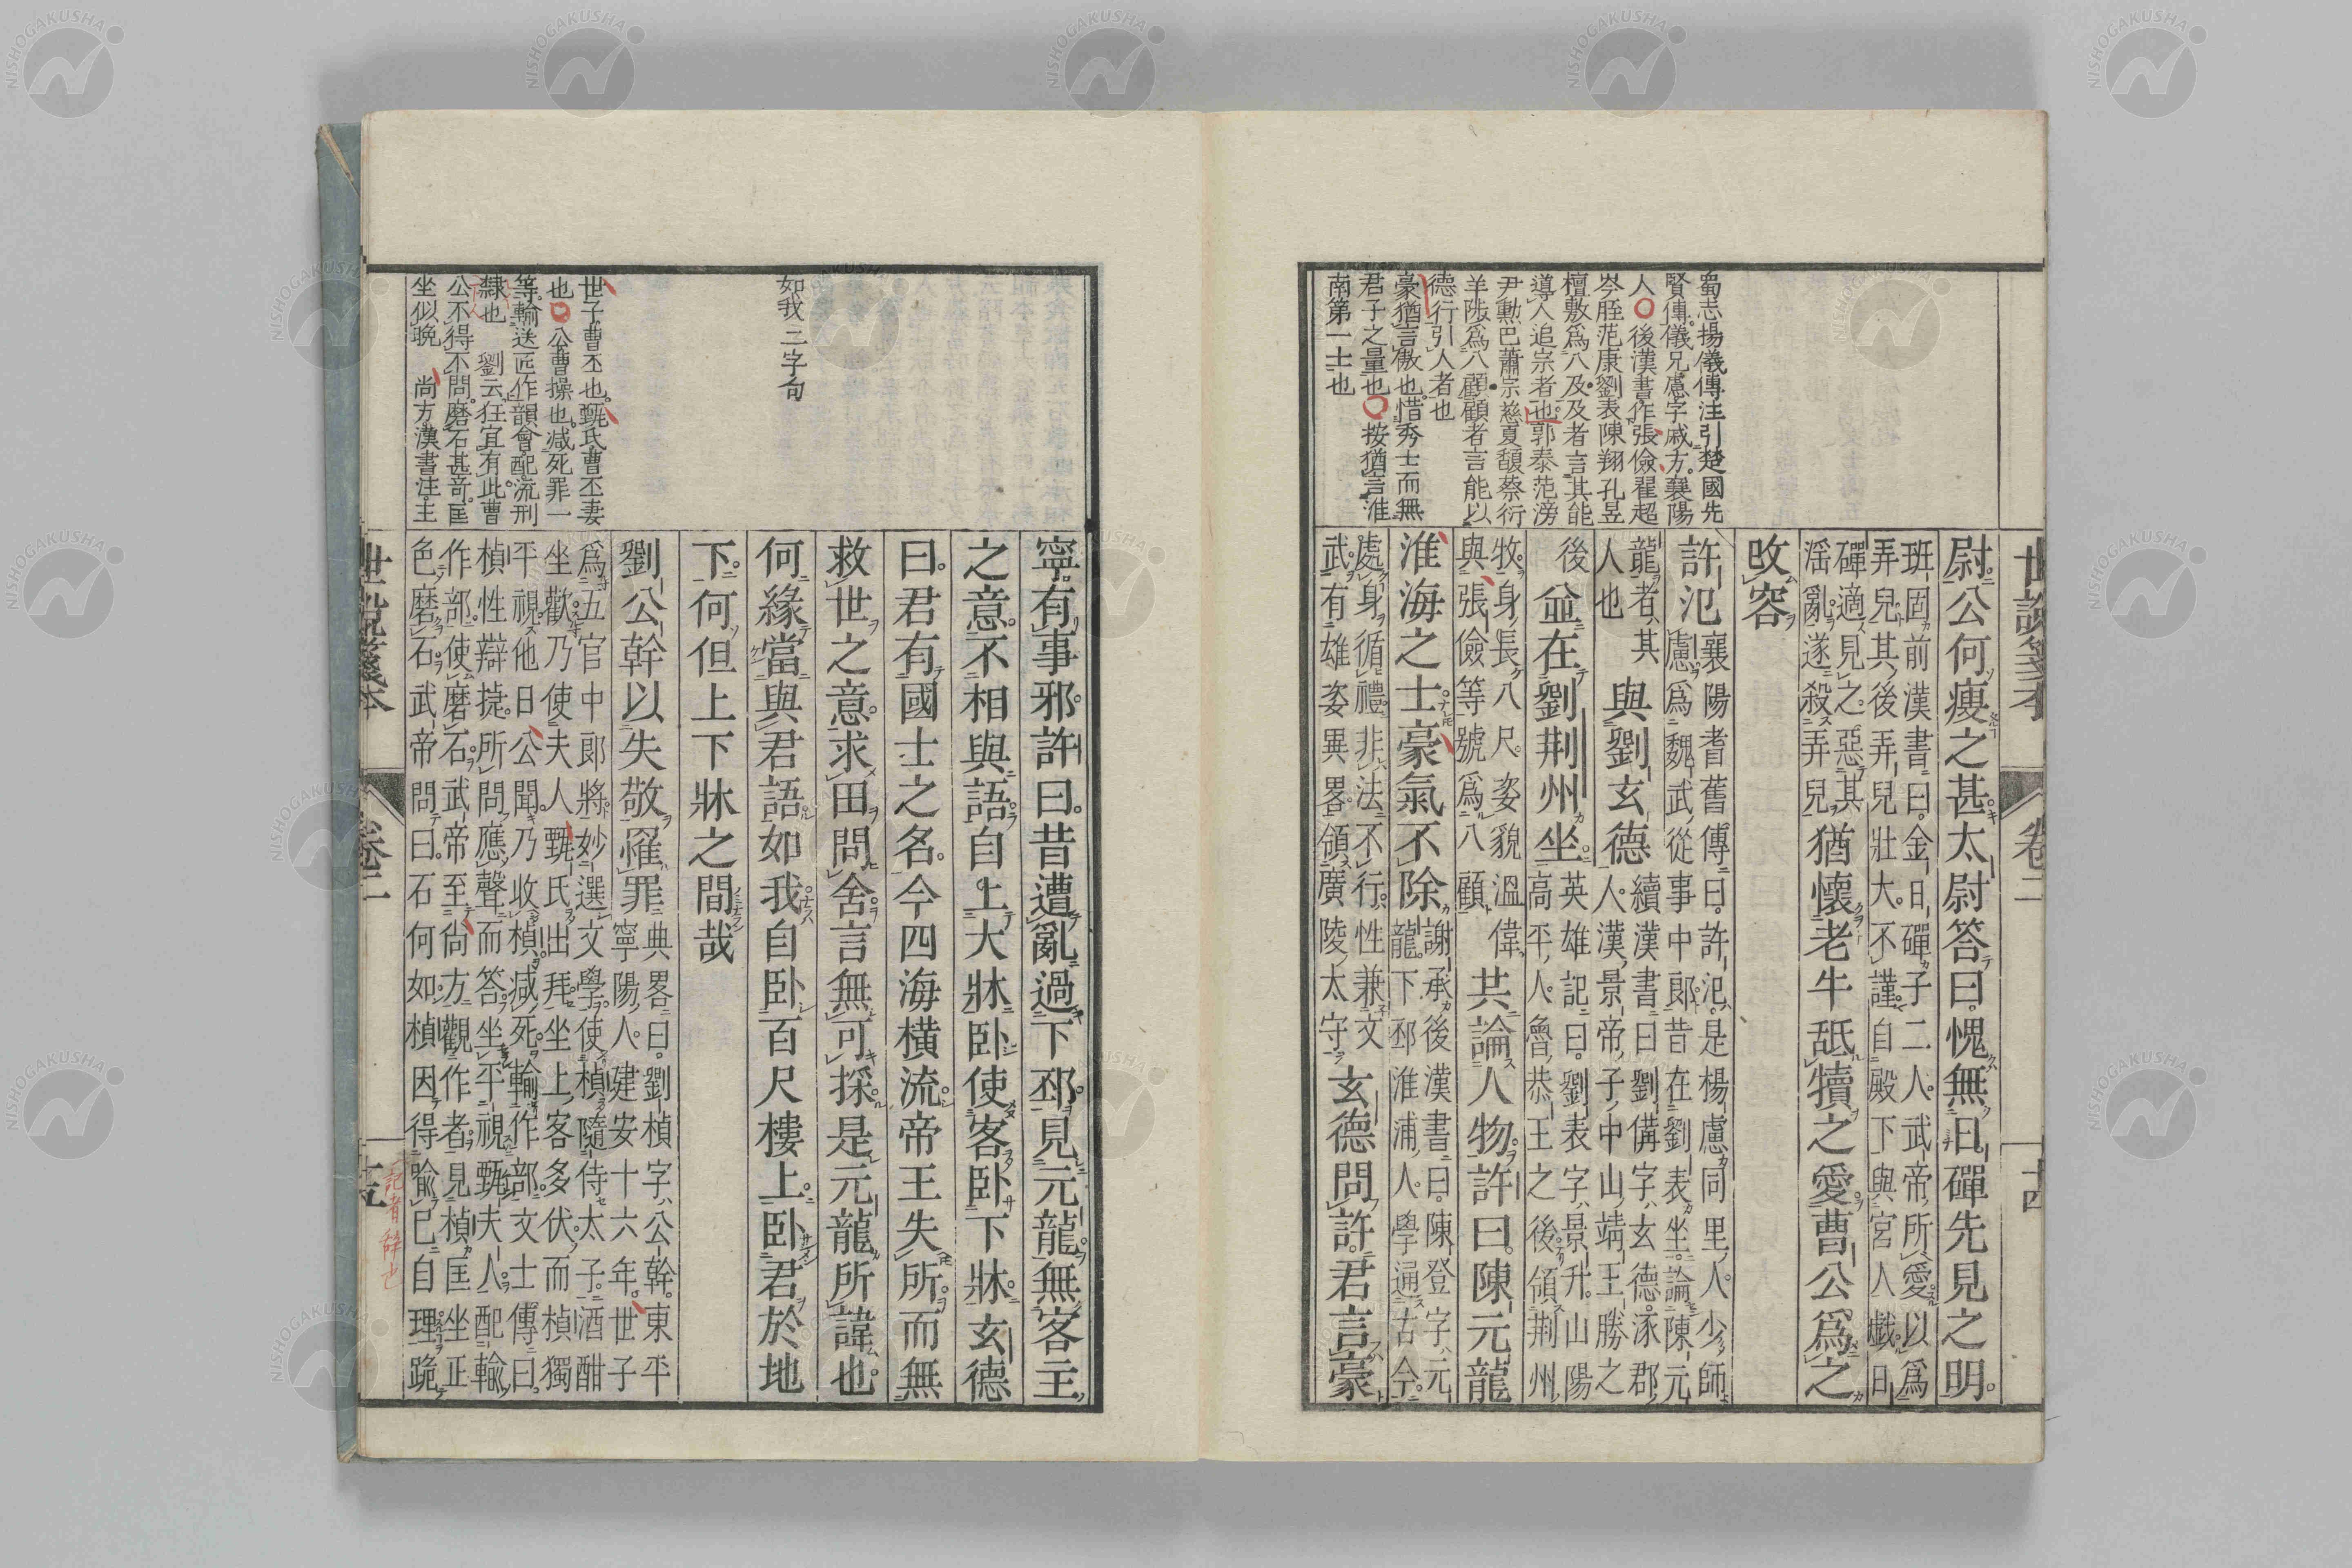 世說箋本 卷二 十四
蜀志揚儀傳注引楚國先
賢傳儀兄慮字威方襄陽
人○後漢書作張儉翟超
岑胵范康劉表陳翔孔昱
檀敷爲八及及者言其能
導人追宗者也郭泰范滂
尹勳巴蕭宗慈夏馥蔡衍
羊陟爲八顧顧者言能以
德行引人者也
豪猶言傲也惜秀士而無
君子之量也○按猶言淮
南第一士也
尉公何瘦之甚太尉答曰愧無日磾先見之明
班固前漢書曰金日磾子二人武帝所愛以爲
弄兒其後弄兒壯大不謹自殿下與宮人戲日
磾適見之惡其
淫亂遂殺弄兒
猶懷老牛舐犢之愛曹公爲之
改容
許汜
襄陽耆舊傳曰許汜是楊慮同里人少師
慮爲魏武從事中郎昔在劉表坐論陳元
龍者其
人也
與劉玄德
續漢書曰劉備字玄德涿郡
人漢景帝子中山靖王勝之
後
並在劉荆州坐
英雄記曰劉表字景升山陽
高平人魯恭王之後領荆州
牧身長八尺姿貌溫偉
與張儉等號爲八顧
共論人物許曰陳元龍
淮海之士豪氣不除
謝承後漢書曰陳登字元
龍下邳淮浦人學通古今
處身循禮非法不行性兼文
武有雄姿異畧領廣陵太守
玄德問許君言豪
寧有事邪許曰昔遭亂過下邳見元龍無客主
之意不相與語自上大牀卧使客卧下牀玄德
曰君有國士之名今四海橫流帝王失所而無
救世之意求田問舍言無可採是元龍所諱也
如我二字句
何緣當與君語如我自卧百尺樓上卧君於地
下何但上下牀之間哉
世子曹丕也甄氏曹丕妻
也○公曹操也减死罪一
等輸送匠作韻會配流刑
隸也 劉云狂宜有此曹
公不得不問磨石甚奇匡
坐似晚 尚方漢書注主
劉公幹以失敬罹罪
典畧曰劉楨字公幹東平
寧陽人建安十六年世子
爲五官中郎將妙選文學使楨隨侍太子酒酣
坐歡乃使夫人甄氏出拜坐上客多伏而楨獨
平視他日公聞乃收楨减死輸作部文士傳曰
楨性辯捷所問應聲而答坐平視甄夫人配輸
作部使磨石武帝至尚方觀作者見楨匡坐正
色磨石武帝問曰石何如楨因得喻已自理跪
記者辭也
世說箋本 卷二 十五